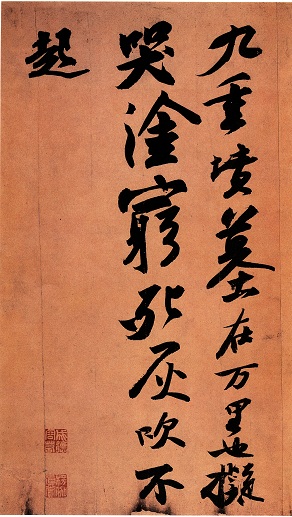 九重墳墓在万里也擬
哭塗窮死灰吹不
起